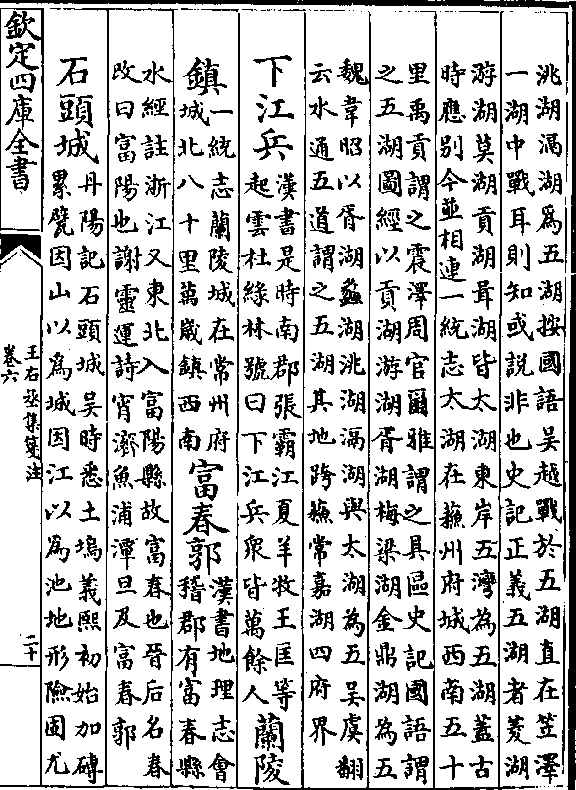 洮湖滆湖為五湖按國語吳越戰於五湖直在笠澤
一湖中戰耳則知或説非也史記正義五湖者菱湖
游湖莫湖貢湖胥湖皆太湖東岸五灣為五湖蓋古
時應别今並相連一統志太湖在蘇州府城西南五十
里禹貢謂之震澤周官爾雅謂之具區史記國語謂
之五湖圖經以貢湖游湖胥湖梅梁湖金鼎湖為五
魏韋昭以胥湖蠡湖洮湖滆湖與太湖為五吳虞翻
云水通五道謂之五湖其地跨蘇常嘉湖四府界
下江兵
漢書是時南郡張霸江夏羊牧王匡等
起雲杜緑林號曰下江兵衆皆萬餘人
蘭陵
鎮
一統志蘭陵城在常州府
城北八十里萬歲鎮西南
富春郭
漢書地理志會
稽郡有富春縣
水經註浙江又東北入富陽縣故富春也晉后名春
改曰富陽也謝靈運詩宵濟魚浦潭旦及富春郭
石頭城
丹陽記石頭城吳時悉土塢義熙初始加磚
累甓因山以為城因江以為池地形險固尤
欽定四庫全書
王右丞集箋注
卷六
二十